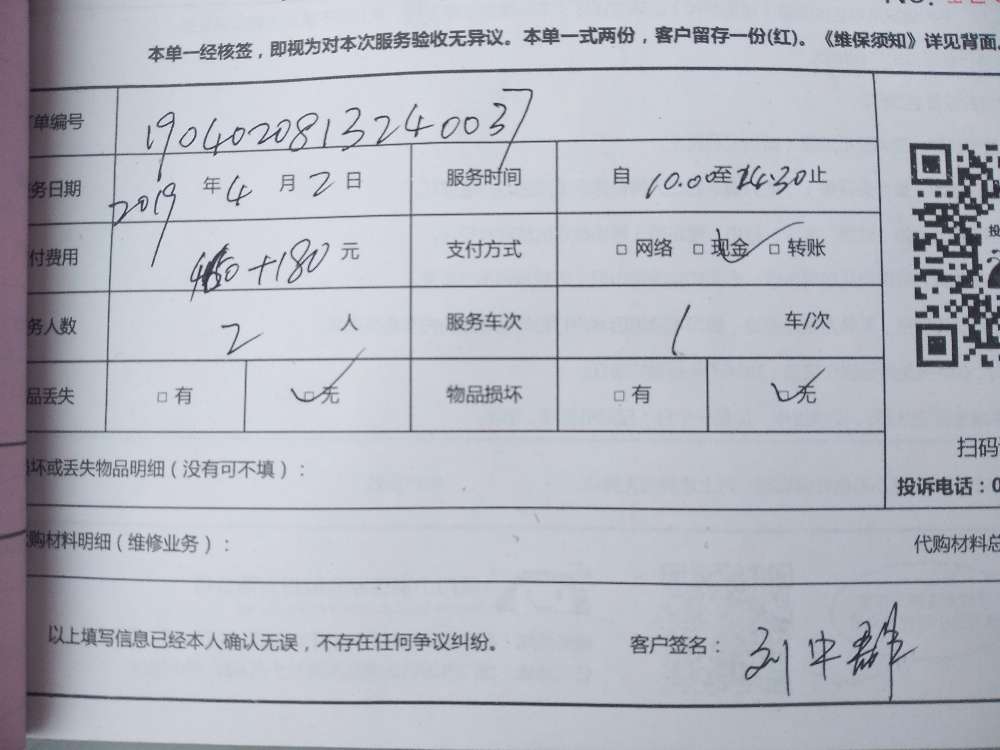 No.
本单一经核签，即视为对本次服务验收无异议。本单一式两份，客户留存一份(红)。《维保须知》详见背面。
单编号 1904020813240037
务日期 2019 年 4 月 2 日 服务时间 自 10.00 至 14.30 止
付费用 450+180 元 支付方式 □ 网络 □ 现金 □ 转账
务人数 2 人 服务车次 1 车/次
品丢失 □ 有 □ 无 物品损坏 □ 有 □ 无
坏或丢失物品明细（没有可不填）：
扫码
投诉电话：0
购材料明细（维修业务）：
代购材料总
以上填写信息已经本人确认无误，不存在任何争议纠纷。
客户签名：刘中群